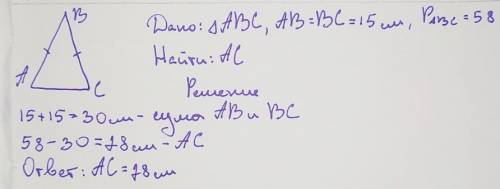 B
Дано: △ABC, AB=BC=15см, P△BC=58
Найти: AC
A
C
Решение
15+15=30см - сума AB и BC
58-30=28см - AC
Ответ: AC=28см